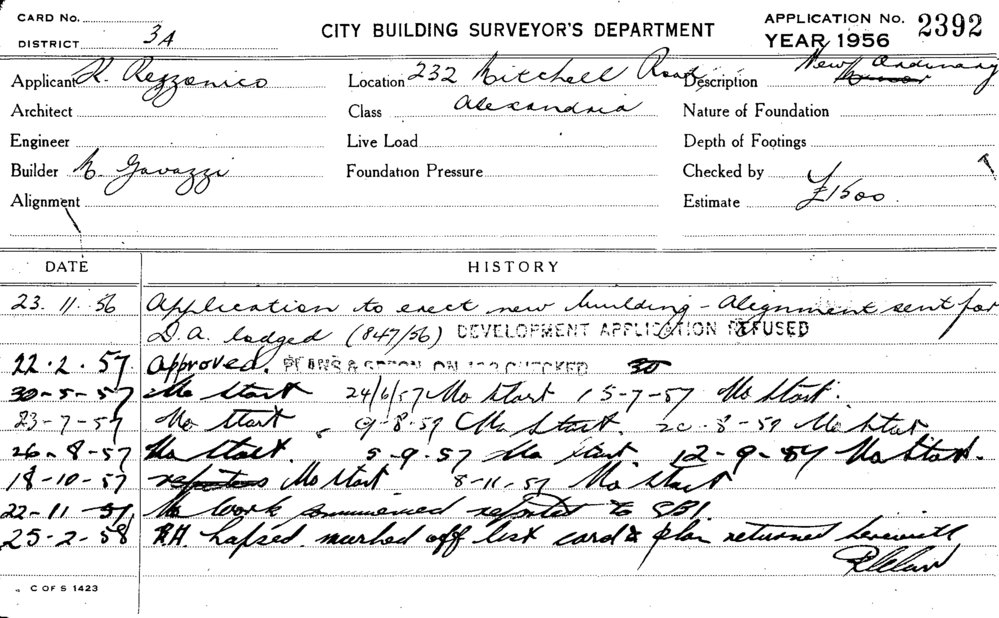 CARD No.
DISTRICT 3A
CITY BUILDING SURVEYOR'S DEPARTMENT
APPLICATION No. 2392
YEAR 1956
Applicant R. Rezzonico
Location 232 Mitchell Road,
Description New Ordinary Minor
Architect
Class Alexandria
Nature of Foundation
Engineer
Live Load
Depth of Footings
Builder N. Gavazzi
Foundation Pressure
Checked by
Alignment
Estimate £1500
DATE HISTORY
23.11.56 Application to erect new building - Alignment sent for
D.A. lodged (847/56) DEVELOPMENT APPLICATION REFUSED
22.2.57 Approved. PLANS & CHECKED
30-5-57 No start 24/6/57 No start 15-7-57 No start.
23-7-57 No start, 9-8-57 No start. 20-8-57 No start
26-8-57 No start. 5-9-57 No start 12-9-57 No start.
18-10-57 No start 8-11-57 No start
22-11-57 No work commenced reported to
25-2-58 Lapsed. marked off list card & plan returned herewith
C OF S 1423